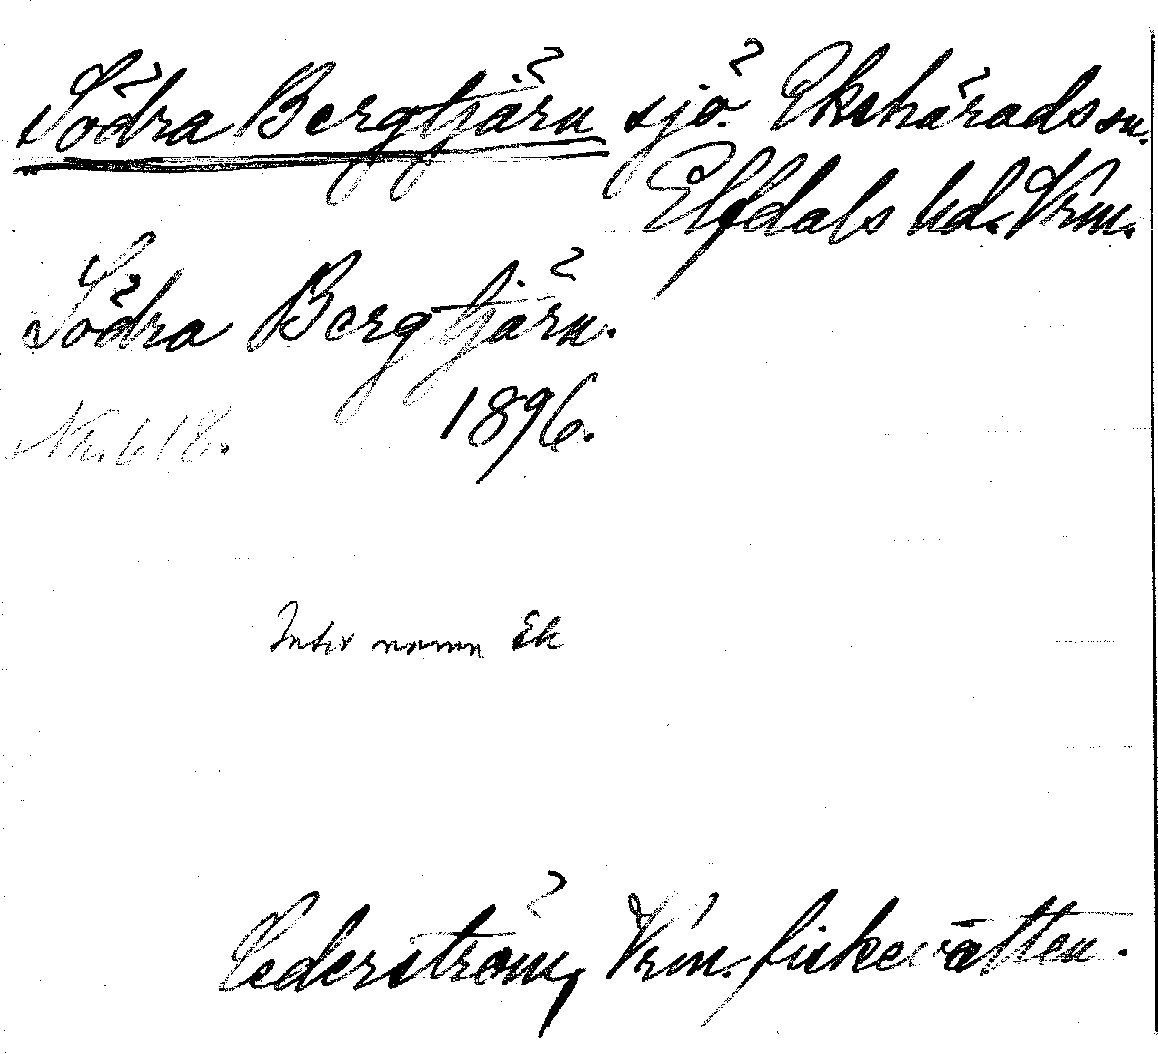 Södra Bergtjärn sjö. Ekshärads sn.
Elfdals hd. Vrm.
Södra Bergtjärn.
1896.
Nr. 618.
namn Ek
Cederström, Vrm. fiskevatten.